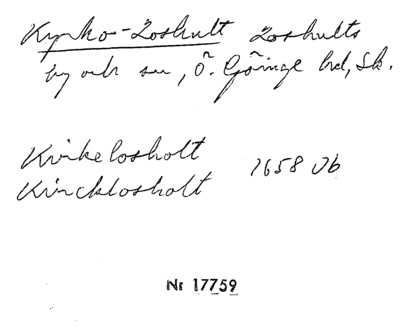 Kyrko-Loshult Loshults
by och sn, Ö. Göinge hd, Sk.
Kirkelosholt
Kircklosholt 1658 Jb
Nr 17759